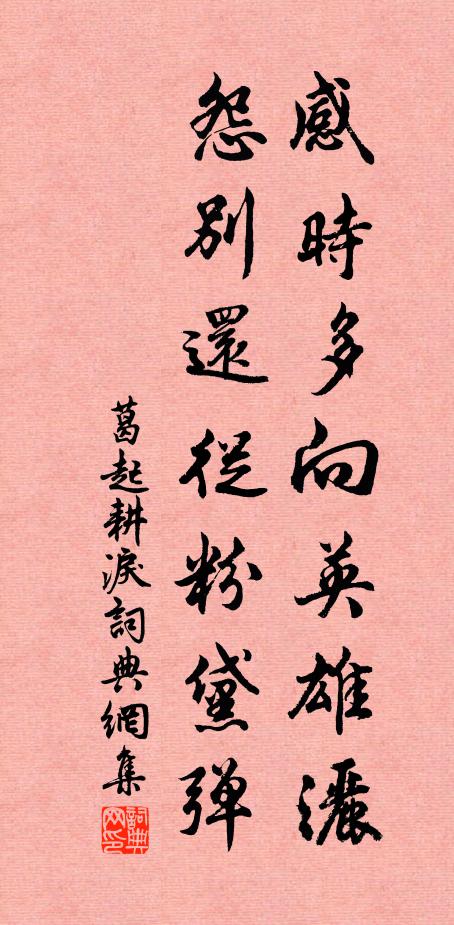 感時多向英雄灑
怨別還從粉黛彈
葛起耕淚詞典網集
詞典网印